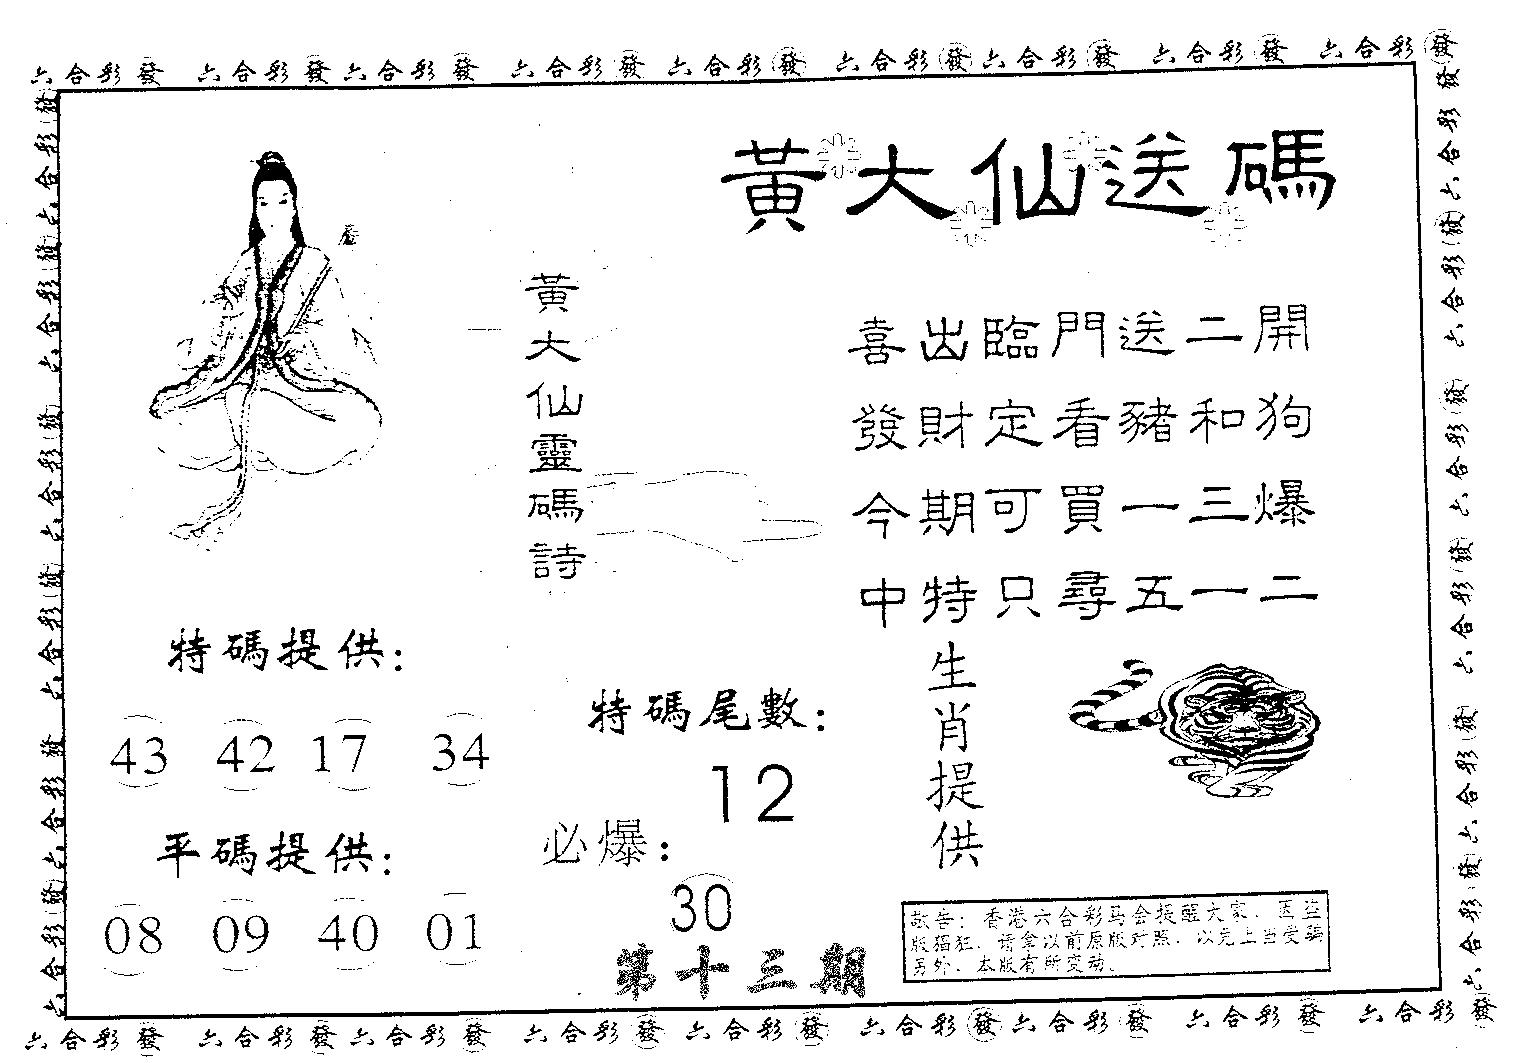 六合彩發 六合彩發 六合彩發 六合彩發 六合彩發 六合彩發 六合彩發 六合彩發 六合彩發
黃大仙送碼
黃大仙靈碼詩
喜出臨門送二開
發財定看豬和狗
今期可買一三爆
中特只尋五一二
特碼提供：
43 42 17 34
平碼提供：
08 09 40 01
特碼尾數：
12
必爆：
30
第十三期
生肖提供
敬告：香港六合彩马会提醒大家、因盗
版猖狂、请拿以前原版对照、以免上当受骗
另外、本版有所变动。
六合彩發 六合彩發 六合彩發 六合彩發 六合彩發 六合彩發 六合彩發 六合彩發 六合彩發